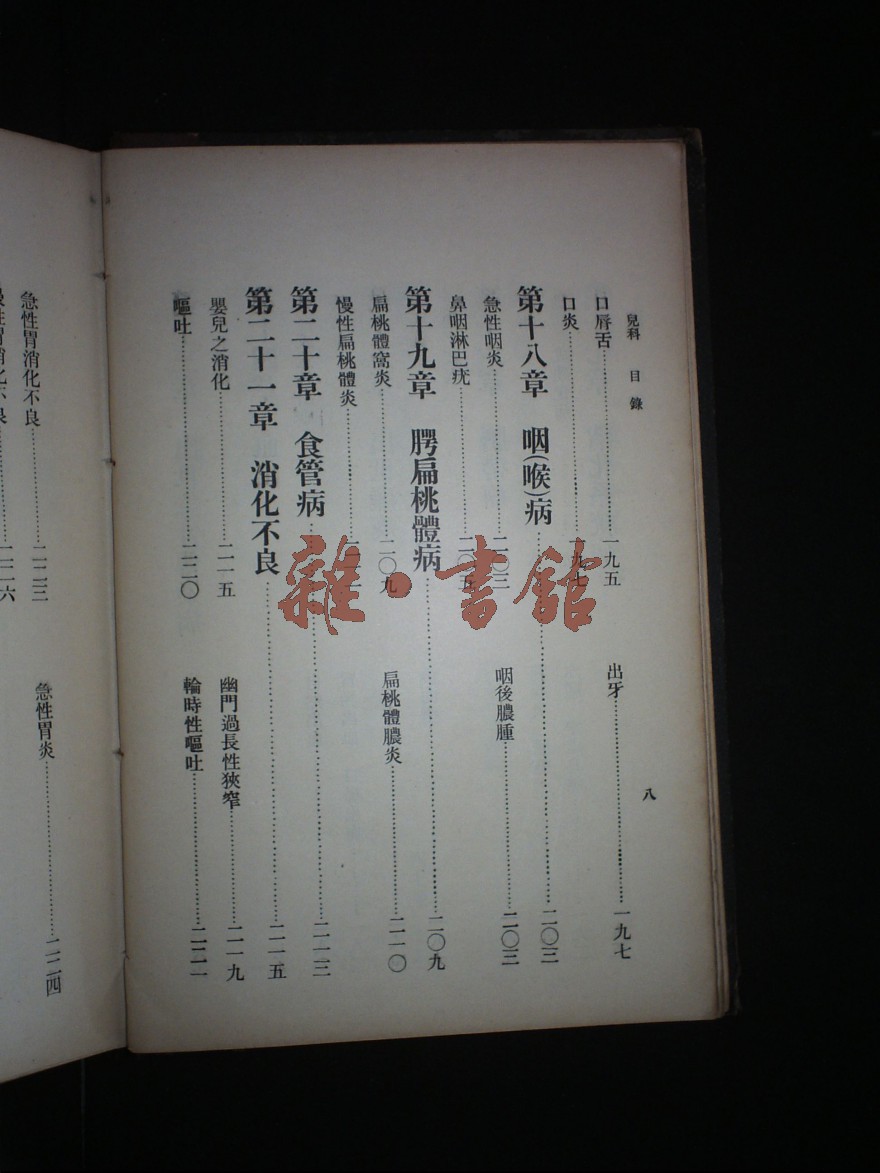 兒科 目錄 八
口唇舌……一九五 出牙……一九七
口炎……一九七
第十八章 咽(喉)病……二〇三
急性咽炎……二〇三 咽後膿腫……二〇三
鼻咽淋巴疣……二〇五
第十九章 腭扁桃體病……二〇九
扁桃體窩炎……二〇九 扁桃體膿炎……二一〇
慢性扁桃體炎……
第二十章 食管病……二一三
第二十一章 消化不良……二一五
嬰兒之消化……二一五 幽門過長性狹窄……二一九
嘔吐……二二〇 輪時性嘔吐……二二一
急性胃消化不良……二二三 急性胃炎……二二四
慢性胃消化不良……二二六
雜·書館